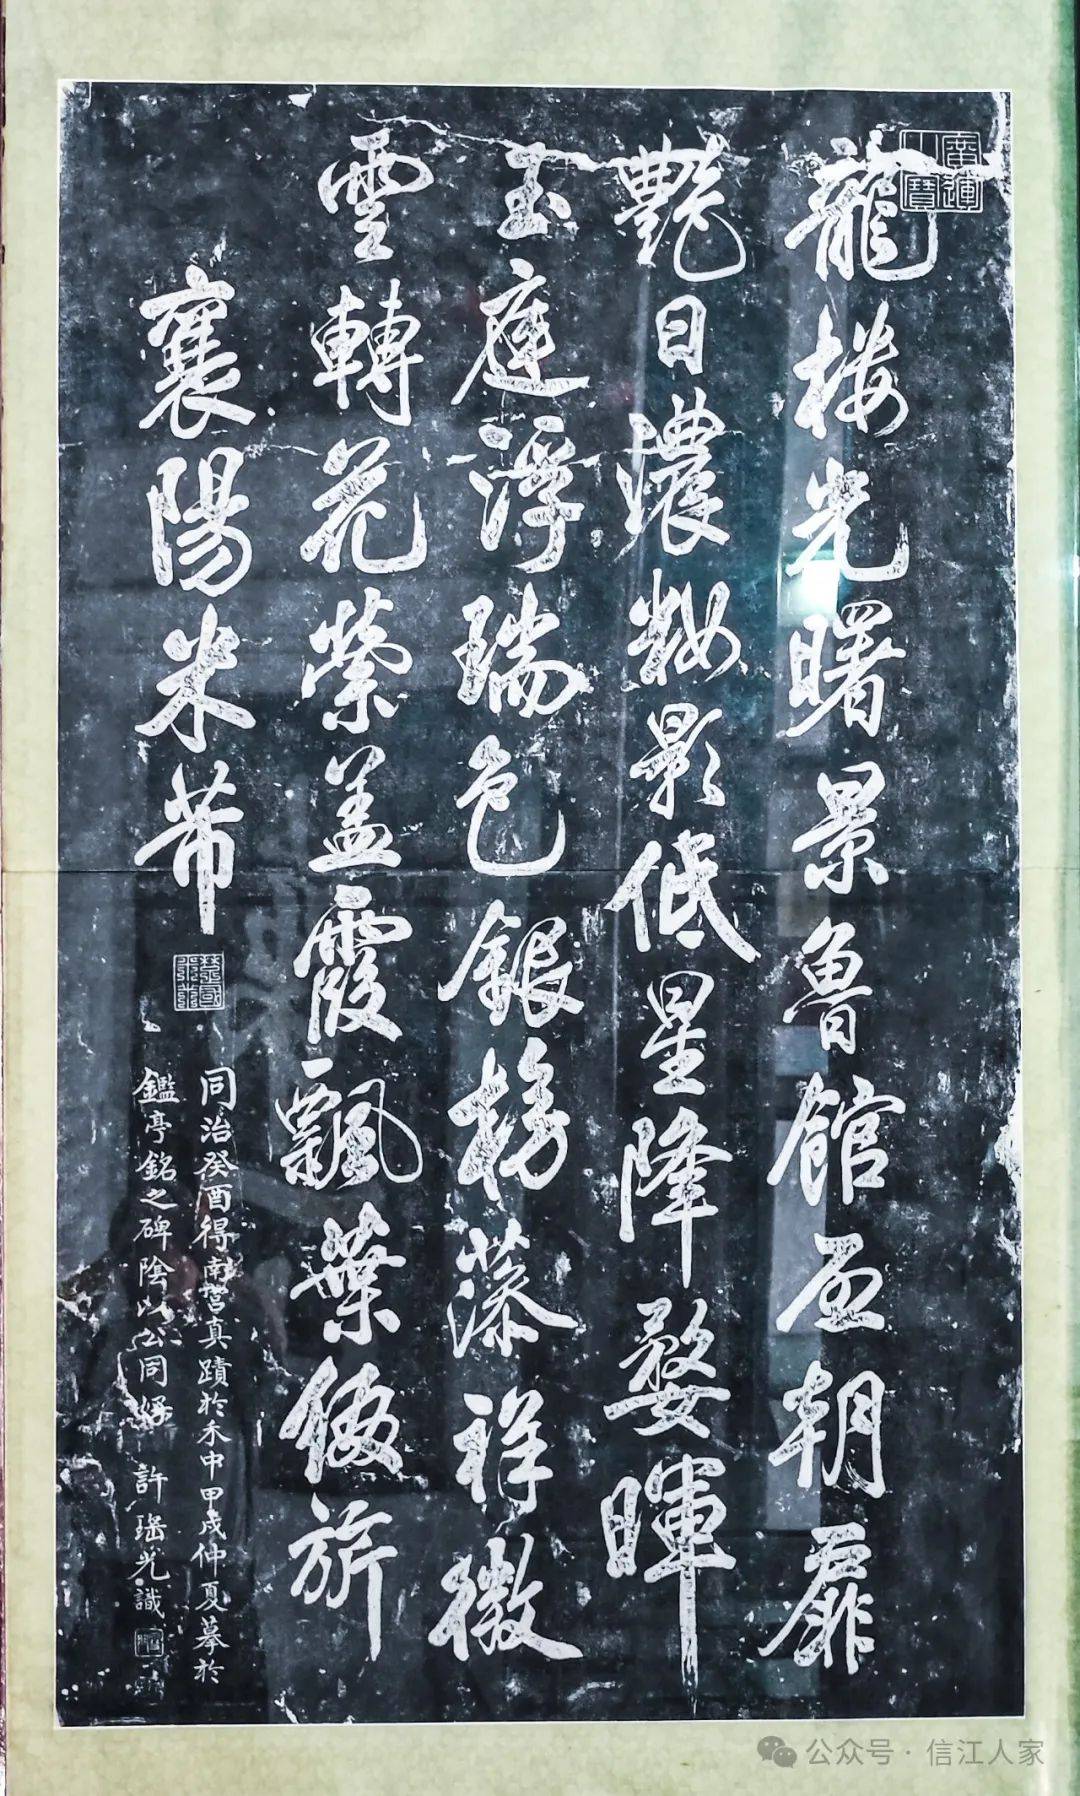 龍楼光曙景魯館启朝扉
艷日濃粧影低星降婺暉
玉庭浮瑞色銀榜藻祥徽
雲轉花縈盖霞飄葉綴旂
襄陽米芾
楚國米芾
同治癸酉得南宮真蹟於禾中甲戌仲夏摹於
鑑亭銘之碑陰以公同好 許瑤光識
公众号 · 信江人家